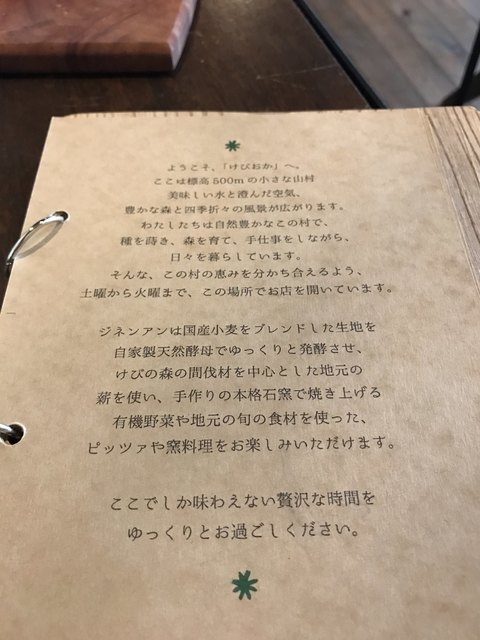 ようこそ、「けびおか」へ。
ここは標高500mの小さな山村
美味しい水と澄んだ空気、
豊かな森と四季折々の風景が広がります。
わたしたちは自然豊かなこの村で、
種を蒔き、森を育て、手仕事をしながら、
日々を暮らしています。
そんな、この村の恵みを分かち合えるよう、
土曜から火曜まで、この場所でお店を開いています。
ジネンアンは国産小麦をブレンドした生地を
自家製天然酵母でゆっくりと発酵させ、
けびの森の間伐材を中心とした地元の
薪を使い、手作りの本格石窯で焼き上げる
有機野菜や地元の旬の食材を使った、
ピッツァや窯料理をお楽しみいただけます。
ここでしか味わえない贅沢な時間を
ゆっくりとお過ごしください。